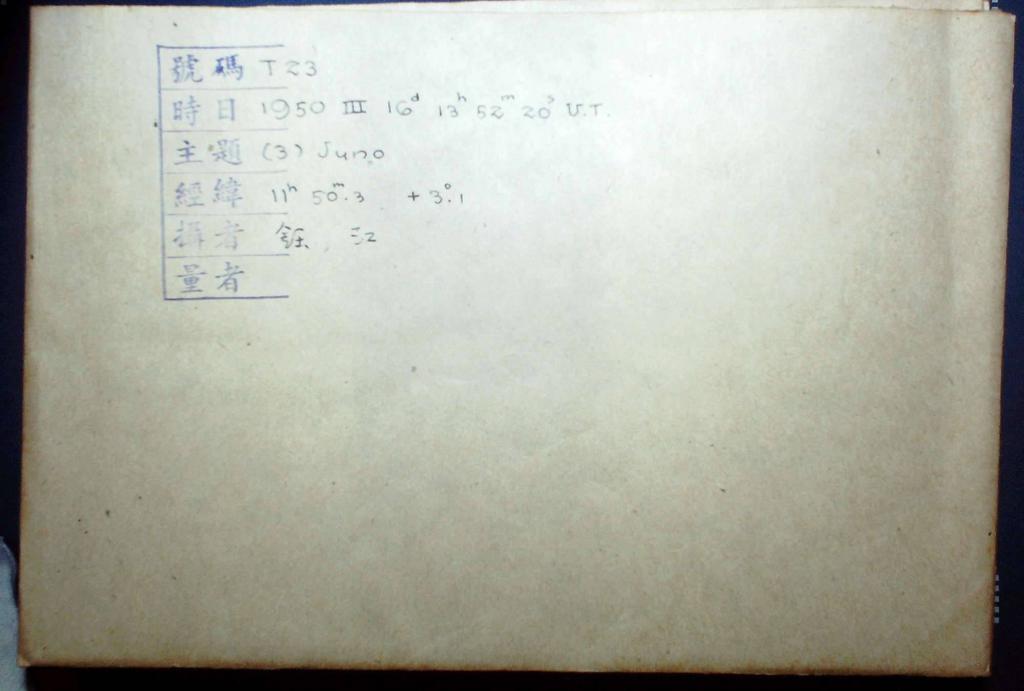 號碼 T 23
時日 1950 III 16ᵈ 13ʰ 52ᵐ 20ˢ U.T.
主題 (3) Juno
經緯 11ʰ 50ᵐ.3 + 3°.1
攝者
量者